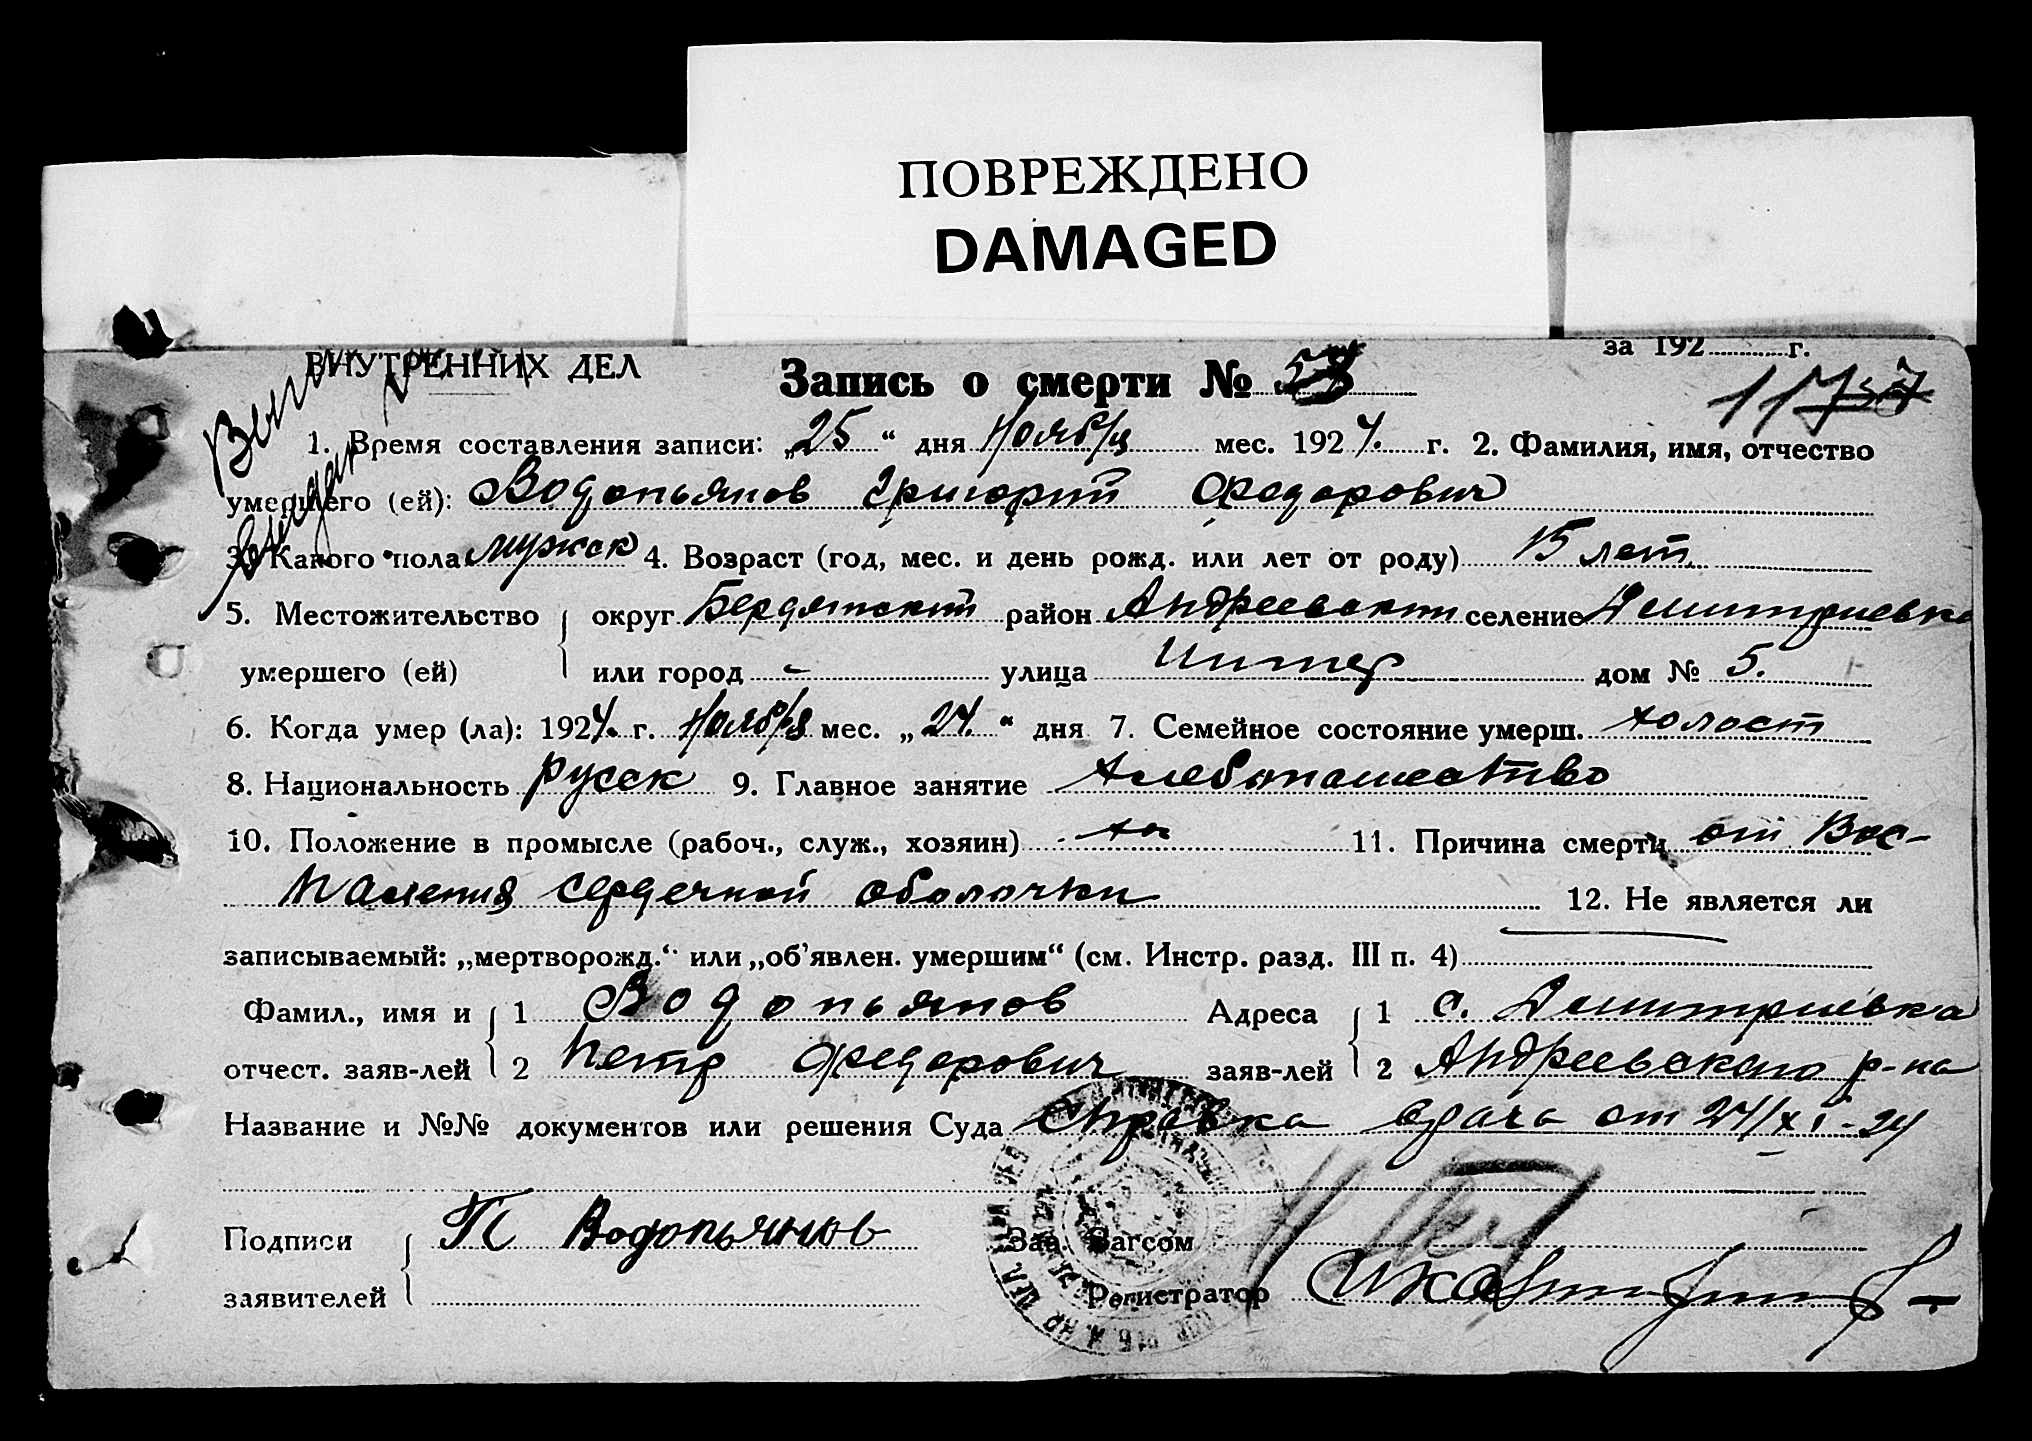 ПОВРЕЖДЕНО
DAMAGED
за 192 г.
ВНУТРЕННИХ ДЕЛ
Запись о смерти №
117
1. Время составления записи: „25“ дня Ноября мес. 1924. г. 2. Фамилия, имя, отчество
умершего (ей): Водопьянов Григорий Федорович
3. Какого пола мужск 4. Возраст (год, мес. и день рожд. или лет от роду) 15 лет
5. Местожительство { округ Бердянский район Андреевский селение Дмитриевка
умершего (ей) или город - улица дом № 5.
6. Когда умер (ла): 1924. г. Ноября мес. „24.“ дня 7. Семейное состояние умерш. холост
8. Национальность русск 9. Главное занятие Хлебопашество
10. Положение в промысле (рабоч., служ., хозяин) 11. Причина смерти от Вос-
паления сердечной оболочки 12. Не является ли
записываемый: „мертворожд.“ или „об'явлен. умершим“ (см. Инстр. разд. III п. 4)
Фамил., имя и { 1 Водопьянов Адреса { 1 с. Дмитриевка
отчест. заяв-лей 2 Петр Федорович заяв-лей 2 Андреевского р-на
Название и №№ документов или решения Суда Справка врача от 24/XI-24
Подписи { П Водопьянов Зав. Загсом
заявителей Регистратор